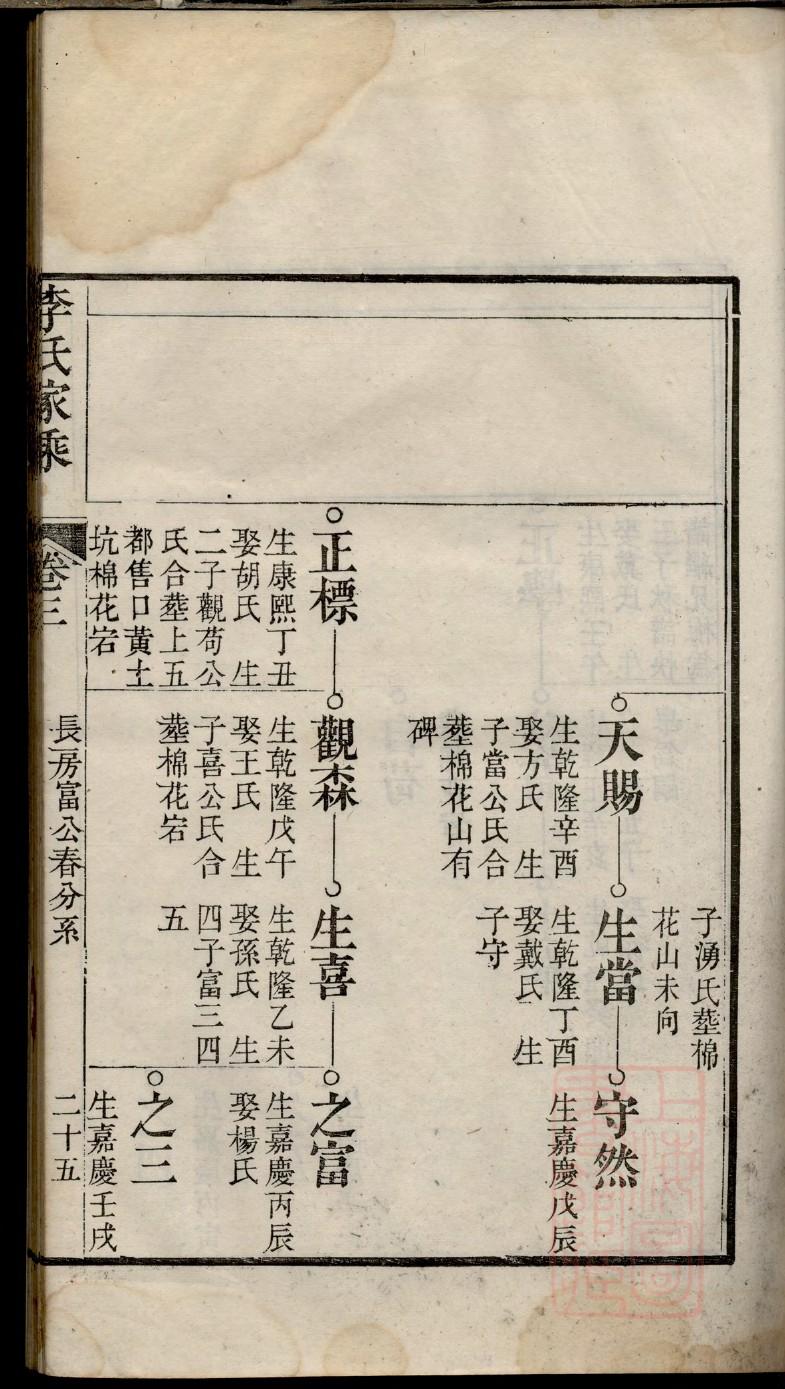 子湧氏塟棉
花山未向
天賜
生乾隆辛酉
娶方氏 生
子當公氏合
塟棉花山有
碑
生當
生乾隆丁酉
娶戴氏 生
子守
守然
生嘉慶戊辰
正標
生康熙丁丑
娶胡氏 生
二子觀苟公
氏合塟上五
都售口黃土
坑棉花宕
觀森
生乾隆戊午
娶王氏 生
子喜公氏合
塟棉花宕
生喜
生乾隆乙未
娶孫氏 生
四子富三四
五
之富
生嘉慶丙辰
娶楊氏
之三
生嘉慶壬戌
李氏家乘
卷三
長房富公春分系
二十五